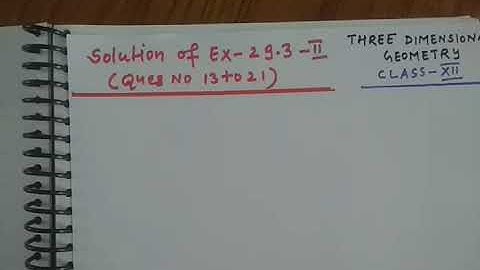 Solution of EX-29.3-II
(Ques No 13 to 21)
THREE DIMENSIONA
GEOMETRY
CLASS-XII